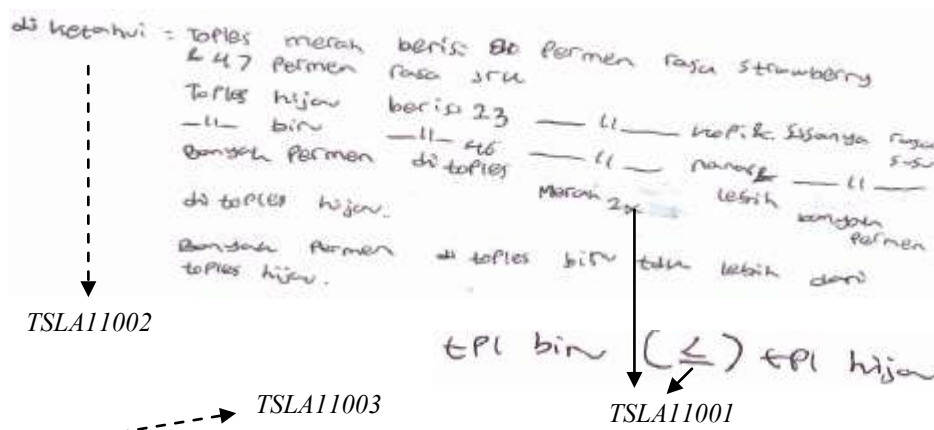 di ketahui = Toples merah berisi 80 Permen rasa strawberry
& 47 Permen rasa jeruk
Toples hijau berisi 23 —〃— kopi & sisanya rasa susu
—〃— biru —〃— 46 —〃— nanas & —〃—
Banyak Permen di toples Merah 2x lebih banyak Permen
di toples hijau.
Banyak Permen di toples biru tdk lebih dari
toples hijau.
TSLA11002
tpl biru (≤) tpl hijau
TSLA11003
TSLA11001